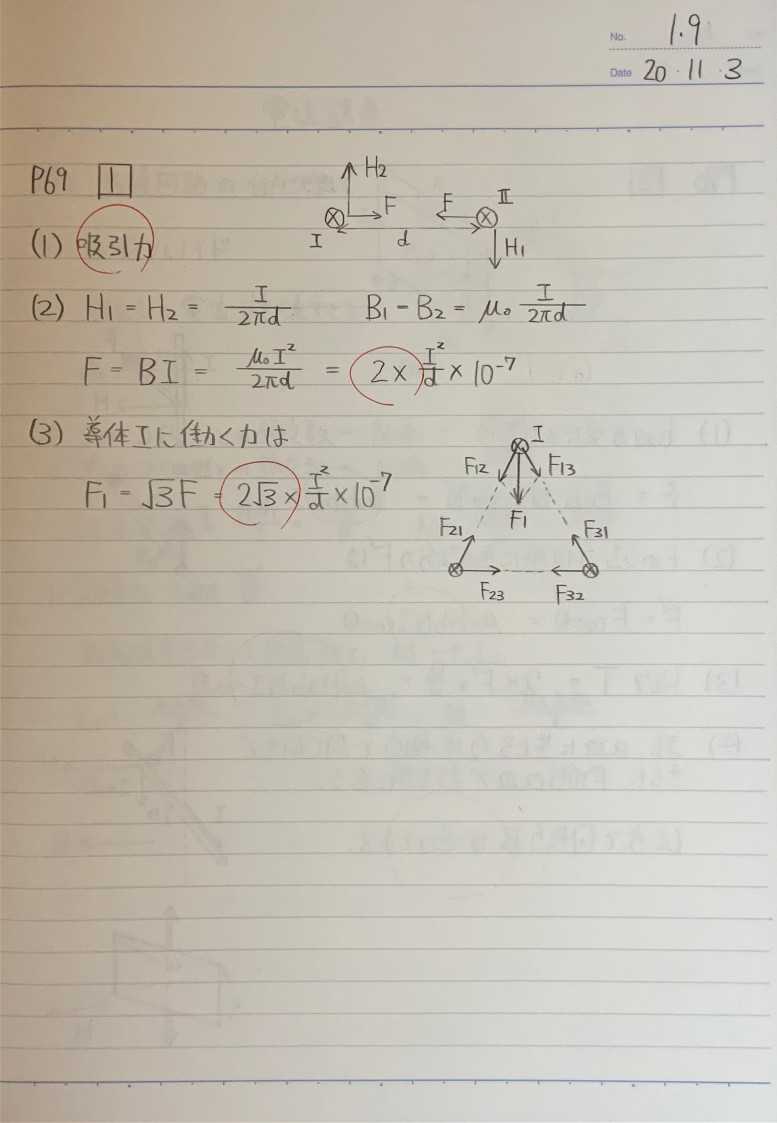 No. 1.9
Date 20・11・3
P69 1
H2
F F II
I d H1
(1) 吸引力
(2) H1 = H2 = I/2πd B1 - B2 = μ0 I/2πd
F = BI = μ0I²/2πd = 2 × I²/d × 10⁻⁷
(3) 導体Iに働く力は
F1 = √3F = 2√3 × I²/d × 10⁻⁷
I
F12 F13
F1
F21 F31
F23 F32